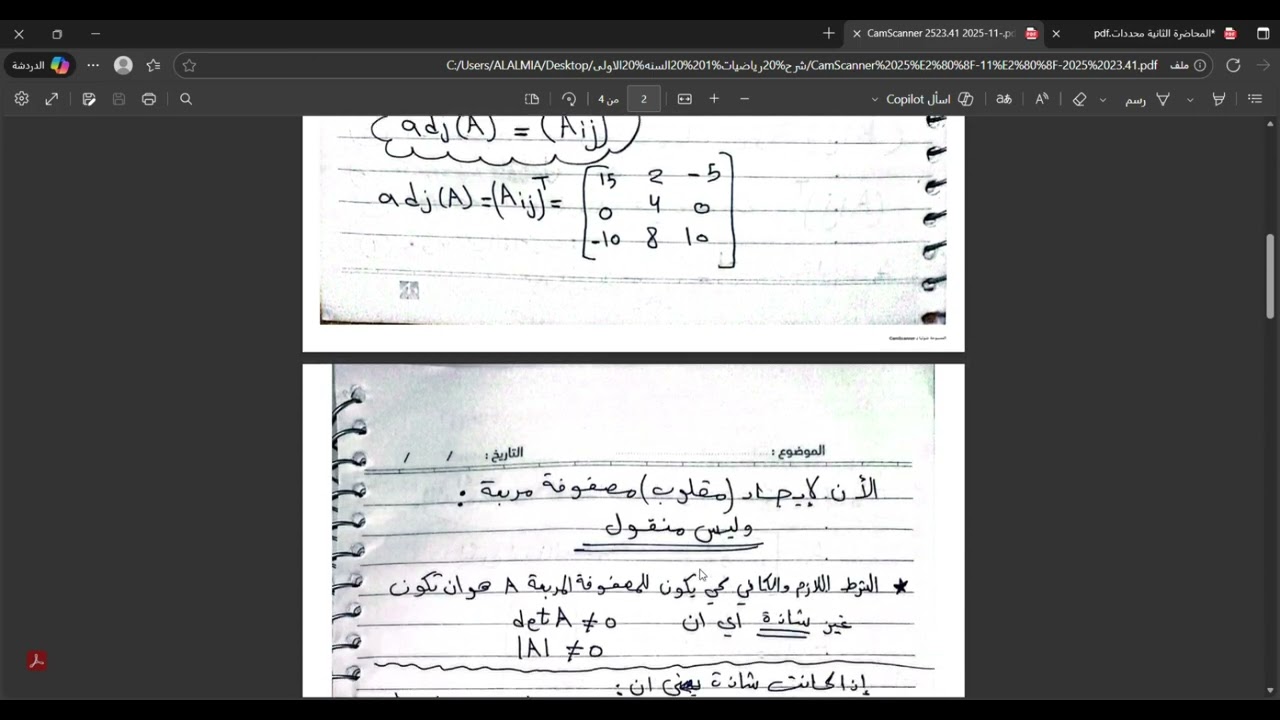 المحاضرة الثانية محددات.pdf*
CamScanner 2523.41 2025-11-.pd
الدردشة
C:/Users/ALALMIA/Desktop/شرح%20رياضيات%201%20السنه%20الاولى/CamScanner%2025%E2%80%8F-11%E2%80%8F-2025%2023.41.pdf
ملف
2
من 4
اسأل Copilot
رسم
adj(A) = (Aij)
adj(A) = (Aij)T = [15 2 -5
0 4 0
-10 8 10]
CamScanner
الموضوع :
التاريخ : / /
الأن لإيجاد (مقلوب) مصفوفة مربعة :
وليس منقول
★ الشرط اللازم والكافي كي يكون للمصفوفة المربعة A هو ان تكون
غير شاذة أي ان detA ≠ 0
|A| ≠ 0
إذا كانت شاذة يعني ان :